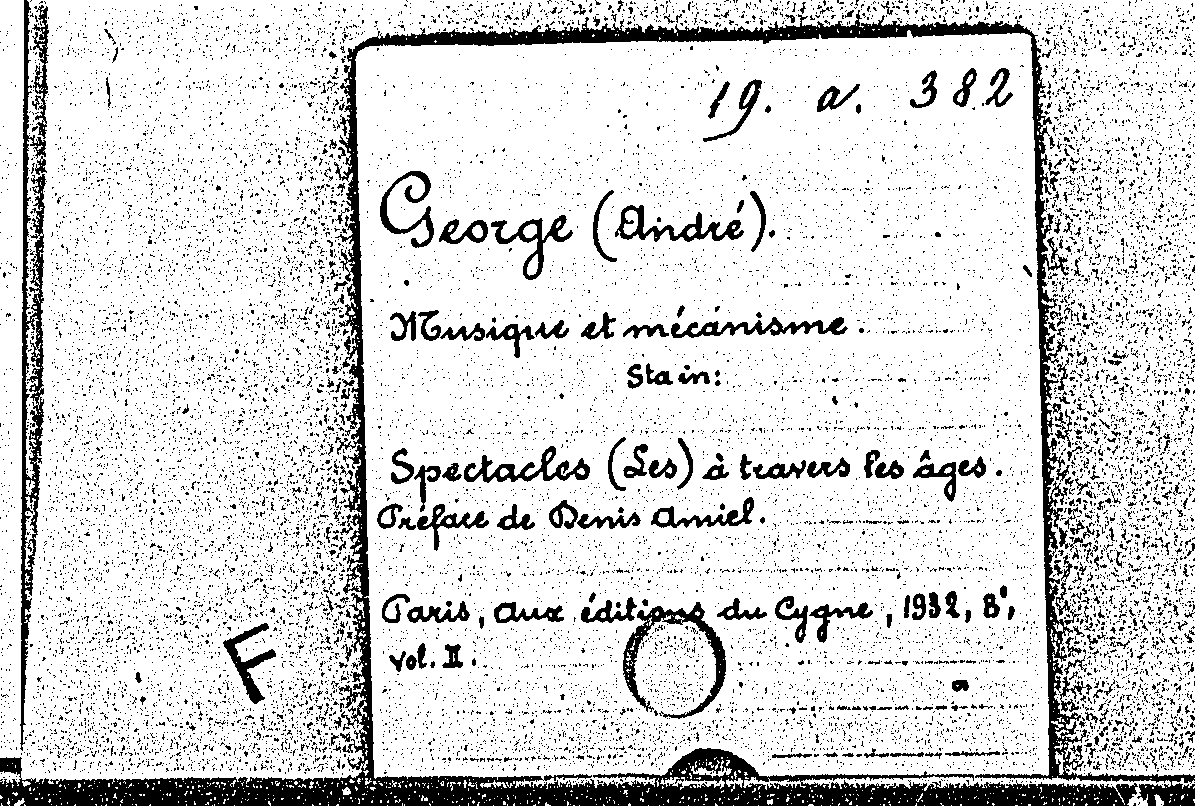 19. a. 382
George (André).
Musique et mécanisme.
Sta in:
Spectacles (Les) à travers les âges.
Préface de Denis Amiel.
Paris, aux éditions du Cygne, 1932, 8°,
vol. II.
a
F